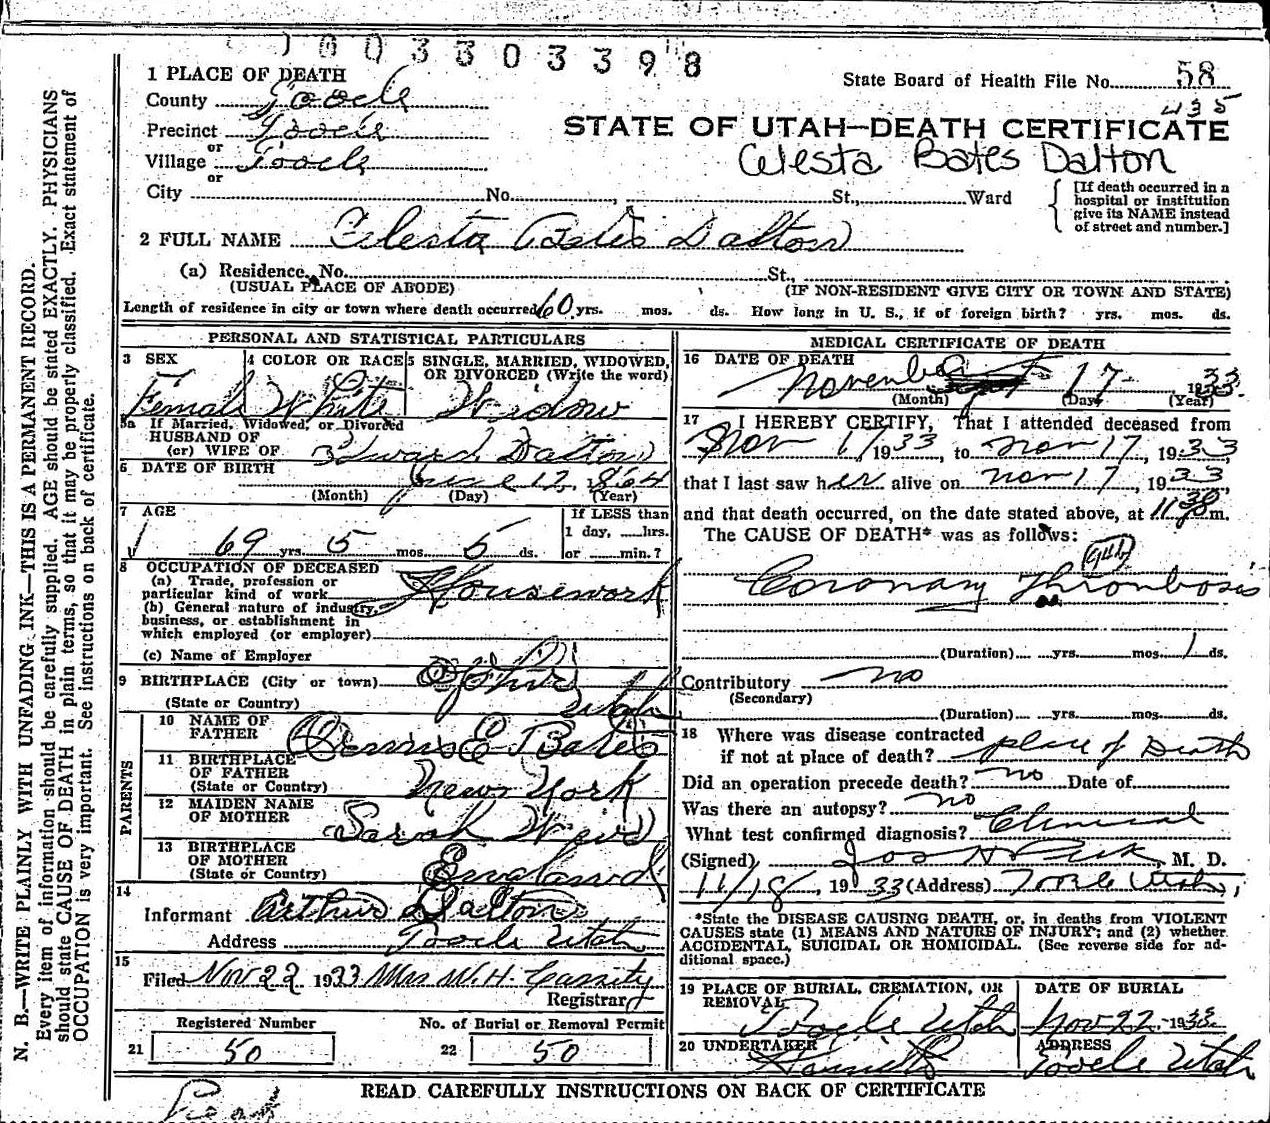 003303398
State Board of Health File No. 58
435
1 PLACE OF DEATH
County Tooele
Precinct Tooele
or
Village Tooele
or
STATE OF UTAH—DEATH CERTIFICATE
Celesta Bates Dalton
City No. St., Ward
[If death occurred in a hospital or institution give its NAME instead of street and number.]
2 FULL NAME Celesta Bates Dalton
(a) Residence, No. St.,
(USUAL PLACE OF ABODE) (IF NON-RESIDENT GIVE CITY OR TOWN AND STATE)
Length of residence in city or town where death occurred 60 yrs. mos. ds. How long in U. S., if of foreign birth? yrs. mos. ds.
PERSONAL AND STATISTICAL PARTICULARS
3 SEX Female
4 COLOR OR RACE White
5 SINGLE, MARRIED, WIDOWED, OR DIVORCED (Write the word) Widow
5a If Married, Widowed, or Divorced
HUSBAND OF
(or) WIFE OF Edward Dalton
6 DATE OF BIRTH June 12, 1864
(Month) (Day) (Year)
7 AGE
69 yrs. 5 mos. 5 ds.
If LESS than 1 day, hrs. or min.?
8 OCCUPATION OF DECEASED
(a) Trade, profession or particular kind of work Housework
(b) General nature of industry, business, or establishment in which employed (or employer)
(c) Name of Employer
9 BIRTHPLACE (City or town) Ophir
(State or Country) Utah
PARENTS
10 NAME OF FATHER Ormus E Bates
11 BIRTHPLACE OF FATHER (State or Country) New York
12 MAIDEN NAME OF MOTHER Sarah Weird
13 BIRTHPLACE OF MOTHER (State or Country) England
14
Informant Arthur Dalton
Address Tooele Utah
15
Filed Nov 22 1933 Mrs W. H. Cassity
Registrar
Registered Number
21 50
No. of Burial or Removal Permit
22 50
MEDICAL CERTIFICATE OF DEATH
16 DATE OF DEATH
November 17 1933
(Month) (Day) (Year)
17 I HEREBY CERTIFY, That I attended deceased from
Nov 1/1933, to Nov 17, 1933,
that I last saw her alive on Nov 17, 1933,
and that death occurred, on the date stated above, at 11 30 m.
The CAUSE OF DEATH* was as follows:
94b
Coronary Thrombosis
(Duration) yrs. mos. 1 ds.
Contributory no
(Secondary)
(Duration) yrs. mos. ds.
18 Where was disease contracted
if not at place of death? place of Death
Did an operation precede death? no Date of
Was there an autopsy? no
What test confirmed diagnosis? Clinical
(Signed) Jos H Peck, M. D.
11/18, 1933 (Address) Tooele Utah,
*State the DISEASE CAUSING DEATH, or, in deaths from VIOLENT CAUSES state (1) MEANS AND NATURE OF INJURY; and (2) whether ACCIDENTAL, SUICIDAL OR HOMICIDAL. (See reverse side for additional space.)
19 PLACE OF BURIAL, CREMATION, OR REMOVAL
Tooele Utah
DATE OF BURIAL
Nov 22 1933
20 UNDERTAKER
ADDRESS
Tooele Utah
READ CAREFULLY INSTRUCTIONS ON BACK OF CERTIFICATE
Peck
N. B.—WRITE PLAINLY WITH UNFADING INK—THIS IS A PERMANENT RECORD.
Every item of information should be carefully supplied. AGE should be stated EXACTLY. PHYSICIANS
should state CAUSE OF DEATH in plain terms, so that it may be properly classified. Exact statement of
OCCUPATION is very important. See instructions on back of certificate.